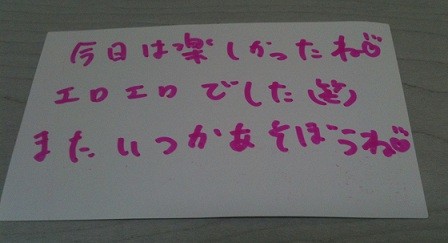 今日は楽しかったね♡
エロエロでした(笑)
またいつかあそぼうね♡